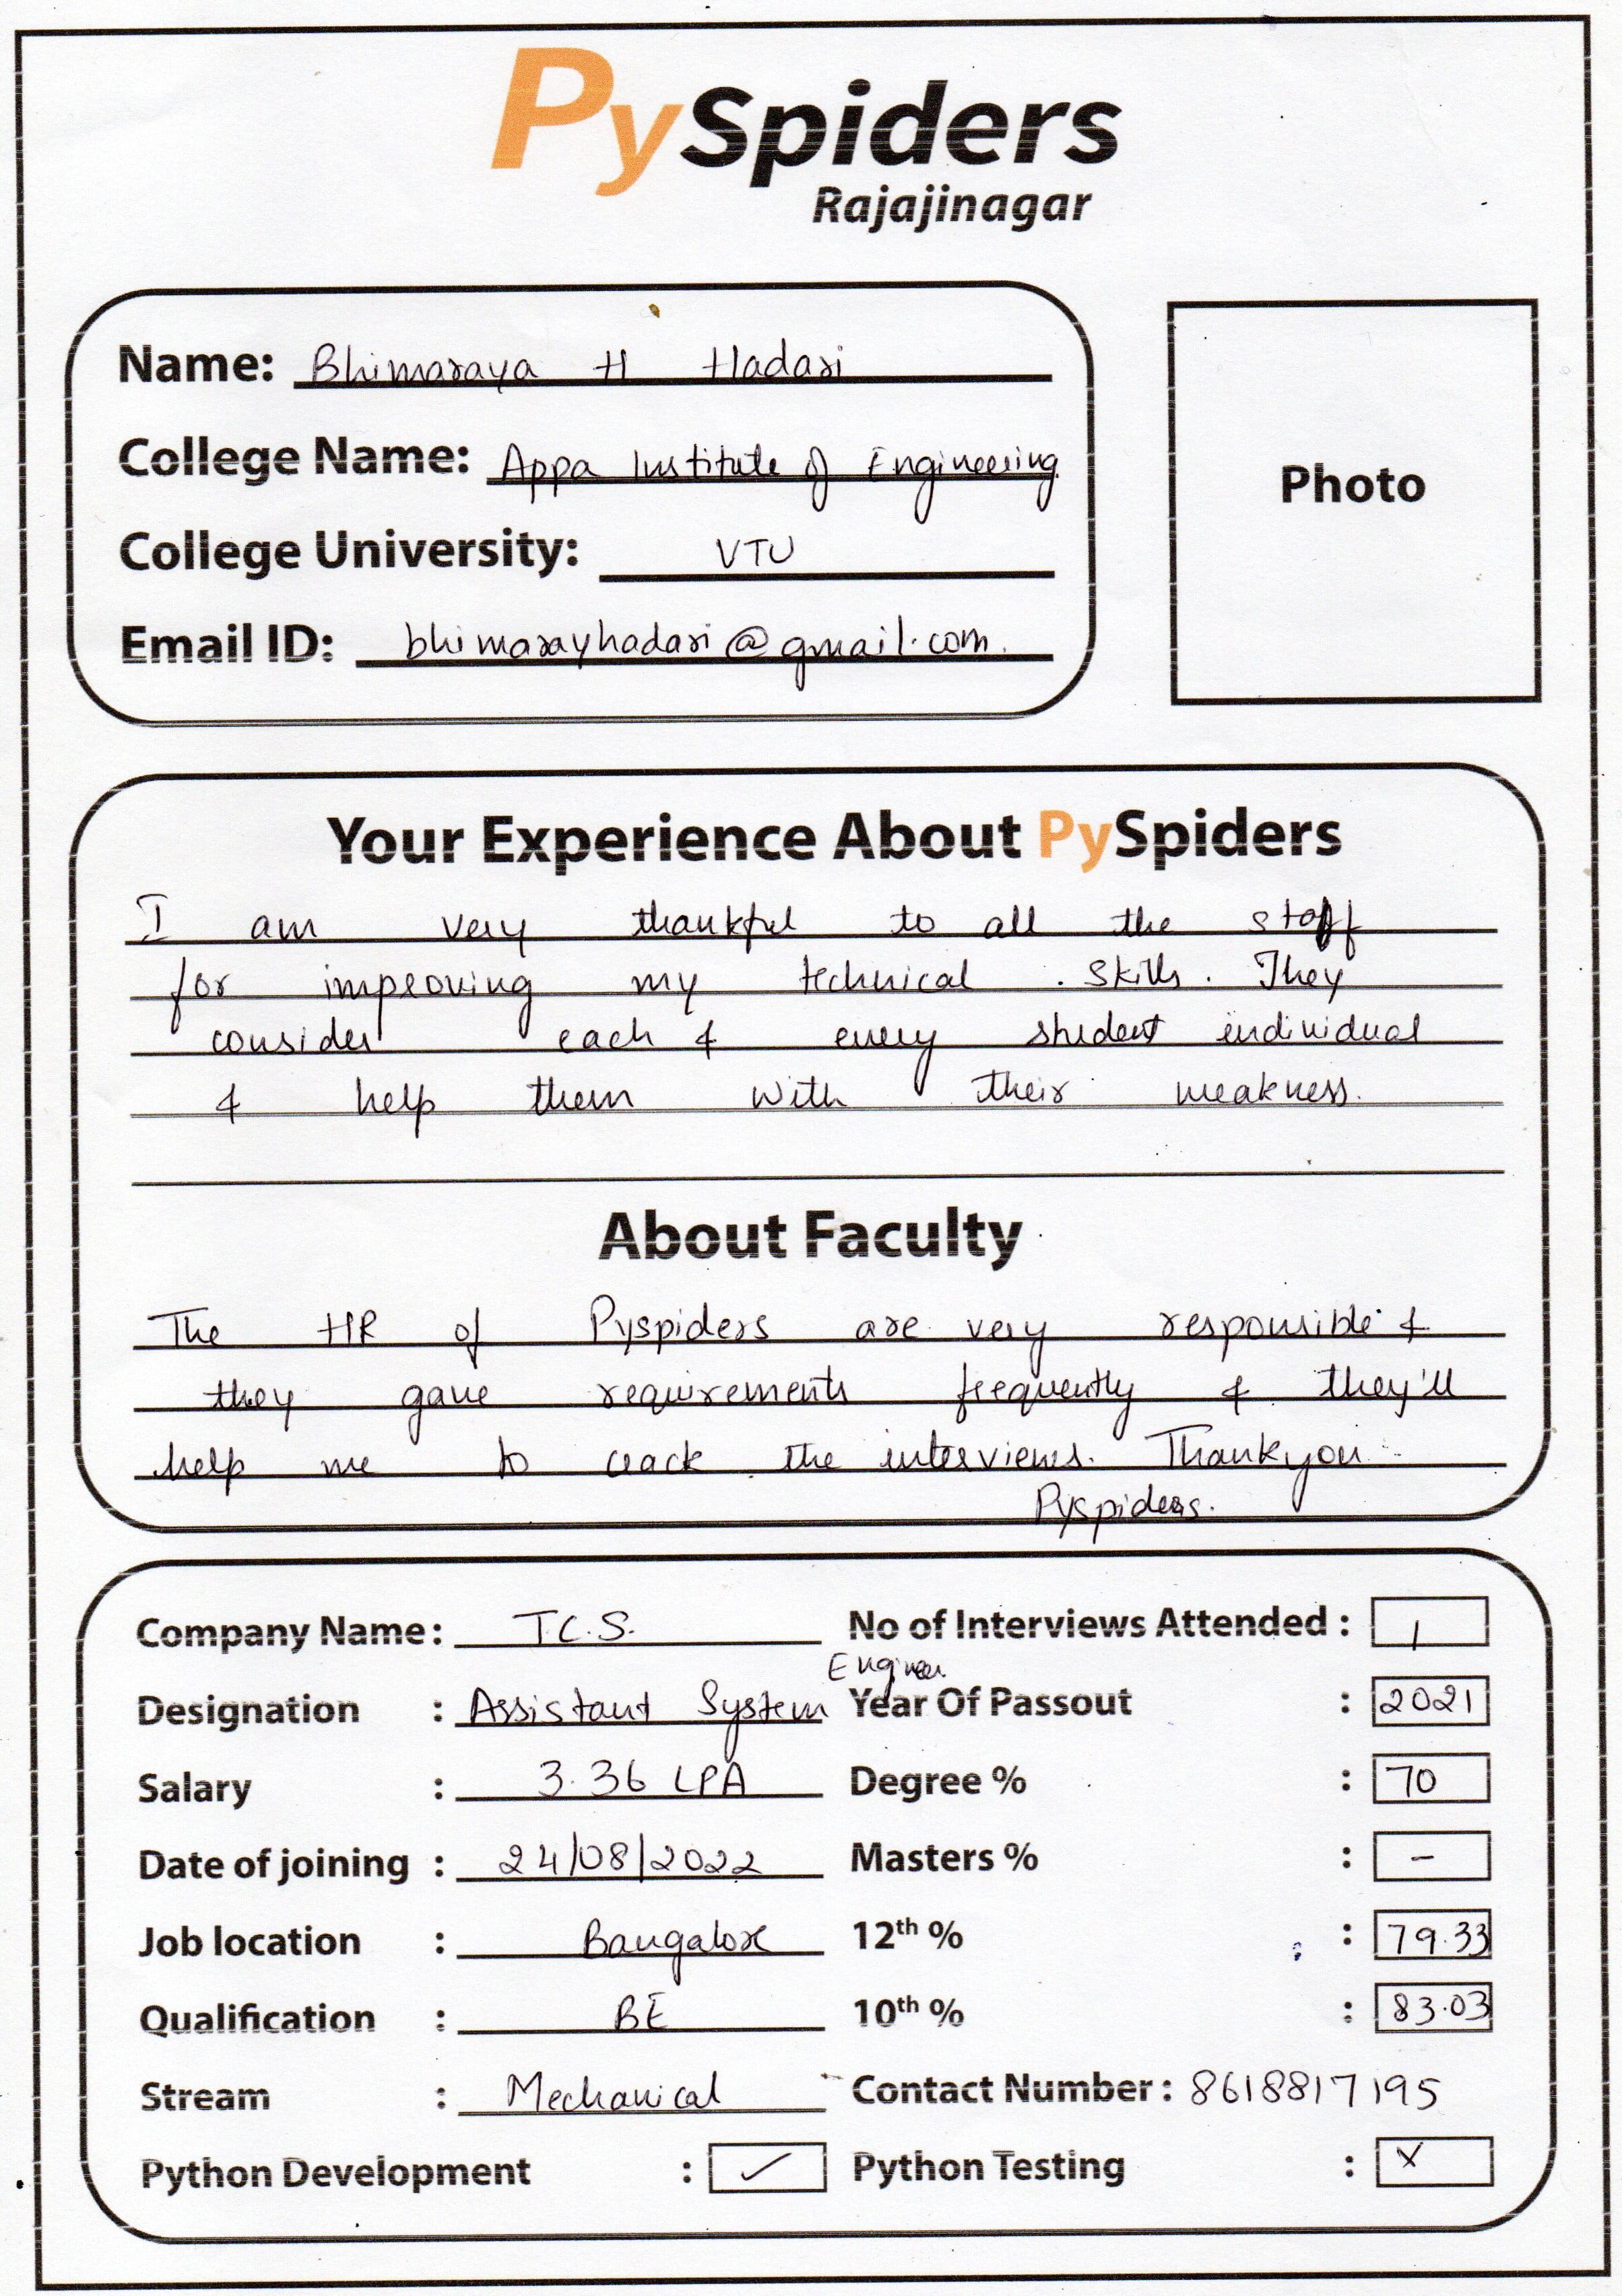 PySpiders
Rajajinagar
Name: Bhimaraya H Hadari
College Name: Appa Institute of Engineering
Photo
College University: VTU
Email ID: bhimarayhadari@gmail.com.
Your Experience About PySpiders
I am very thankful to all the staff
for improving my technical . skills. They
consider each & every student individual
& help them with their weakness.
About Faculty
The HR of Pyspiders are very responsible &
they gave requirements frequently & they'll
help me to crack the interviews. Thankyou
Pyspiders.
Company Name: T.C.S. No of Interviews Attended : 1
Engineer
Designation : Assistant System Year Of Passout : 2021
Salary : 3.36 LPA Degree % : 70
Date of joining : 24/08/2022 Masters % : -
Job location : Bangalore 12th % : 79.33
Qualification : BE 10th % : 83.03
Stream : Mechanical Contact Number : 8618817195
Python Development : ✓ Python Testing : X